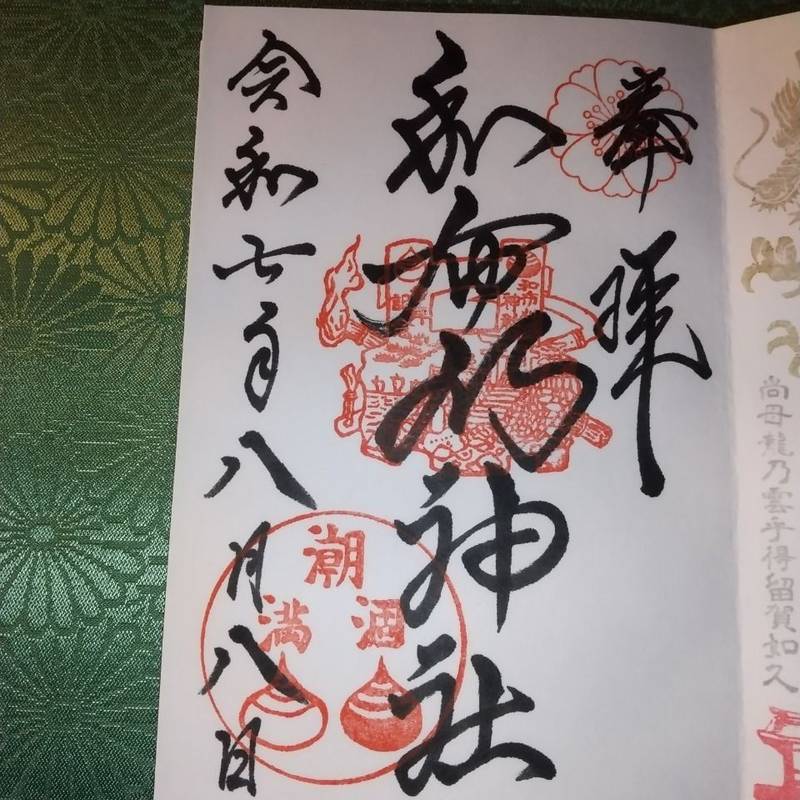 尚母龍乃雲乎得留賀如久
奉拝
和布刈神社
令和七年八月八日
潮
涸
満